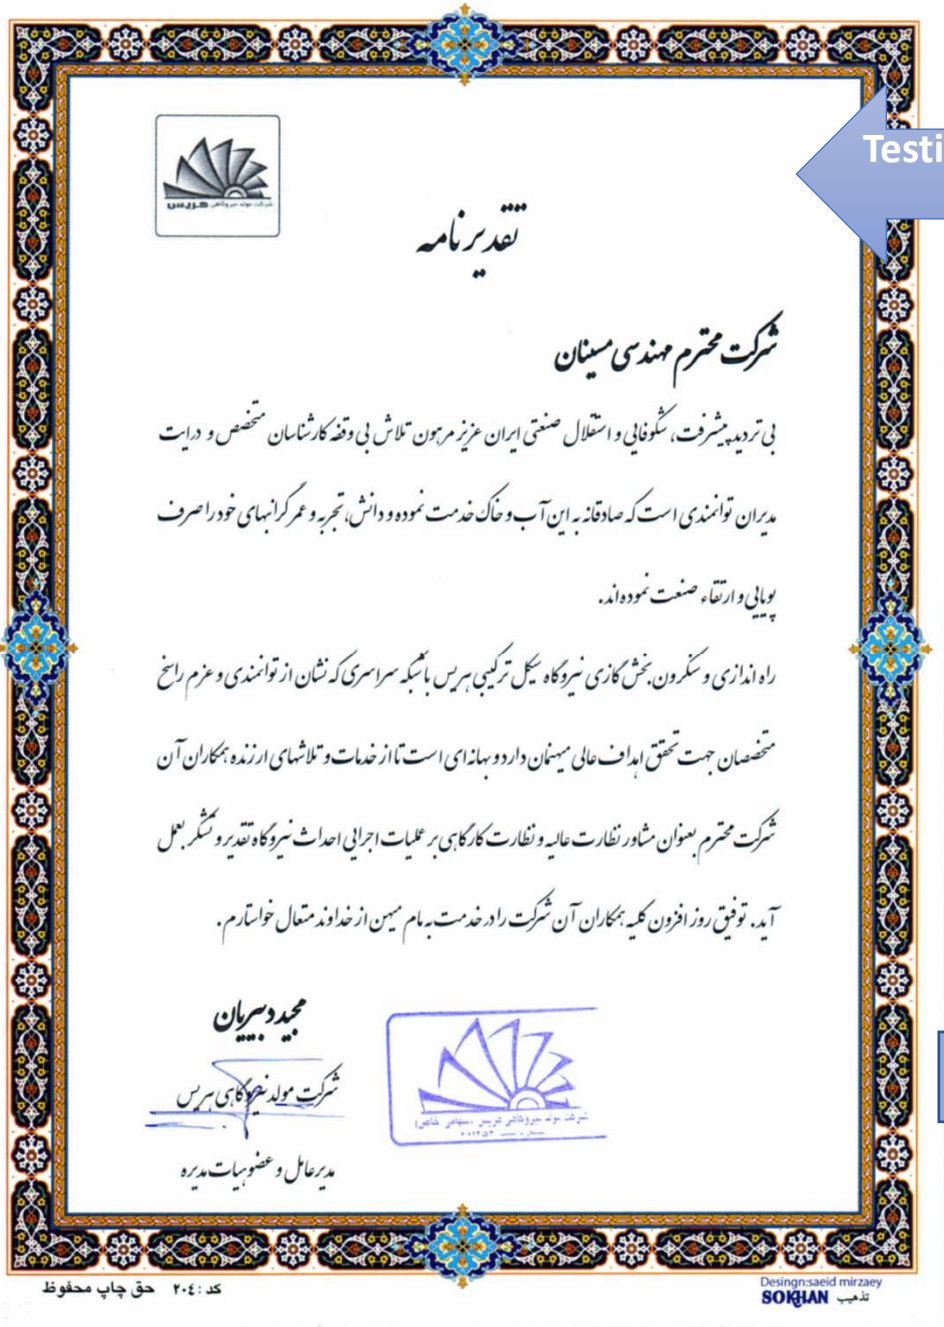 Testi
شرکت مولد نیروگاهی هریس
تقدیرنامه
شرکت محترم مهندسی مسینان
بی تردید پیشرفت، شکوفایی و استقلال صنعتی ایران عزیز مرهون تلاش بی وقفه کارشناسان متخصص و درایت
مدیران توانمندی است که صادقانه به این آب و خاک خدمت نموده و دانش، تجربه و عمر گرانبهای خود را صرف
پویایی و ارتقاء صنعت نموده اند.
راه اندازی و سنکرون بخش گازی نیروگاه سیکل ترکیبی هریس با شبکه سراسری که نشان از توانمندی و عزم راسخ
متخصصان جهت تحقق اهداف عالی میهنمان دارد و بهانه ای است تا از خدمات و تلاشهای ارزنده همکاران آن
شرکت محترم بعنوان مشاور نظارت عالیه و نظارت کارگاهی بر عملیات اجرایی احداث نیروگاه تقدیر و تشکر بعمل
آید. توفیق روز افزون کلیه همکاران آن شرکت را در خدمت به مام میهن از خداوند متعال خواستارم.
مجید دبیریان
شرکت مولد نیروگاهی هریس
مدیرعامل و عضو هیات مدیره
شرکت مولد نیروگاهی هریس (سهامی خاص)
کد : ٢٠٤ حق چاپ محفوظ
Desingn:saeid mirzaey
SOKHAN تذهیب